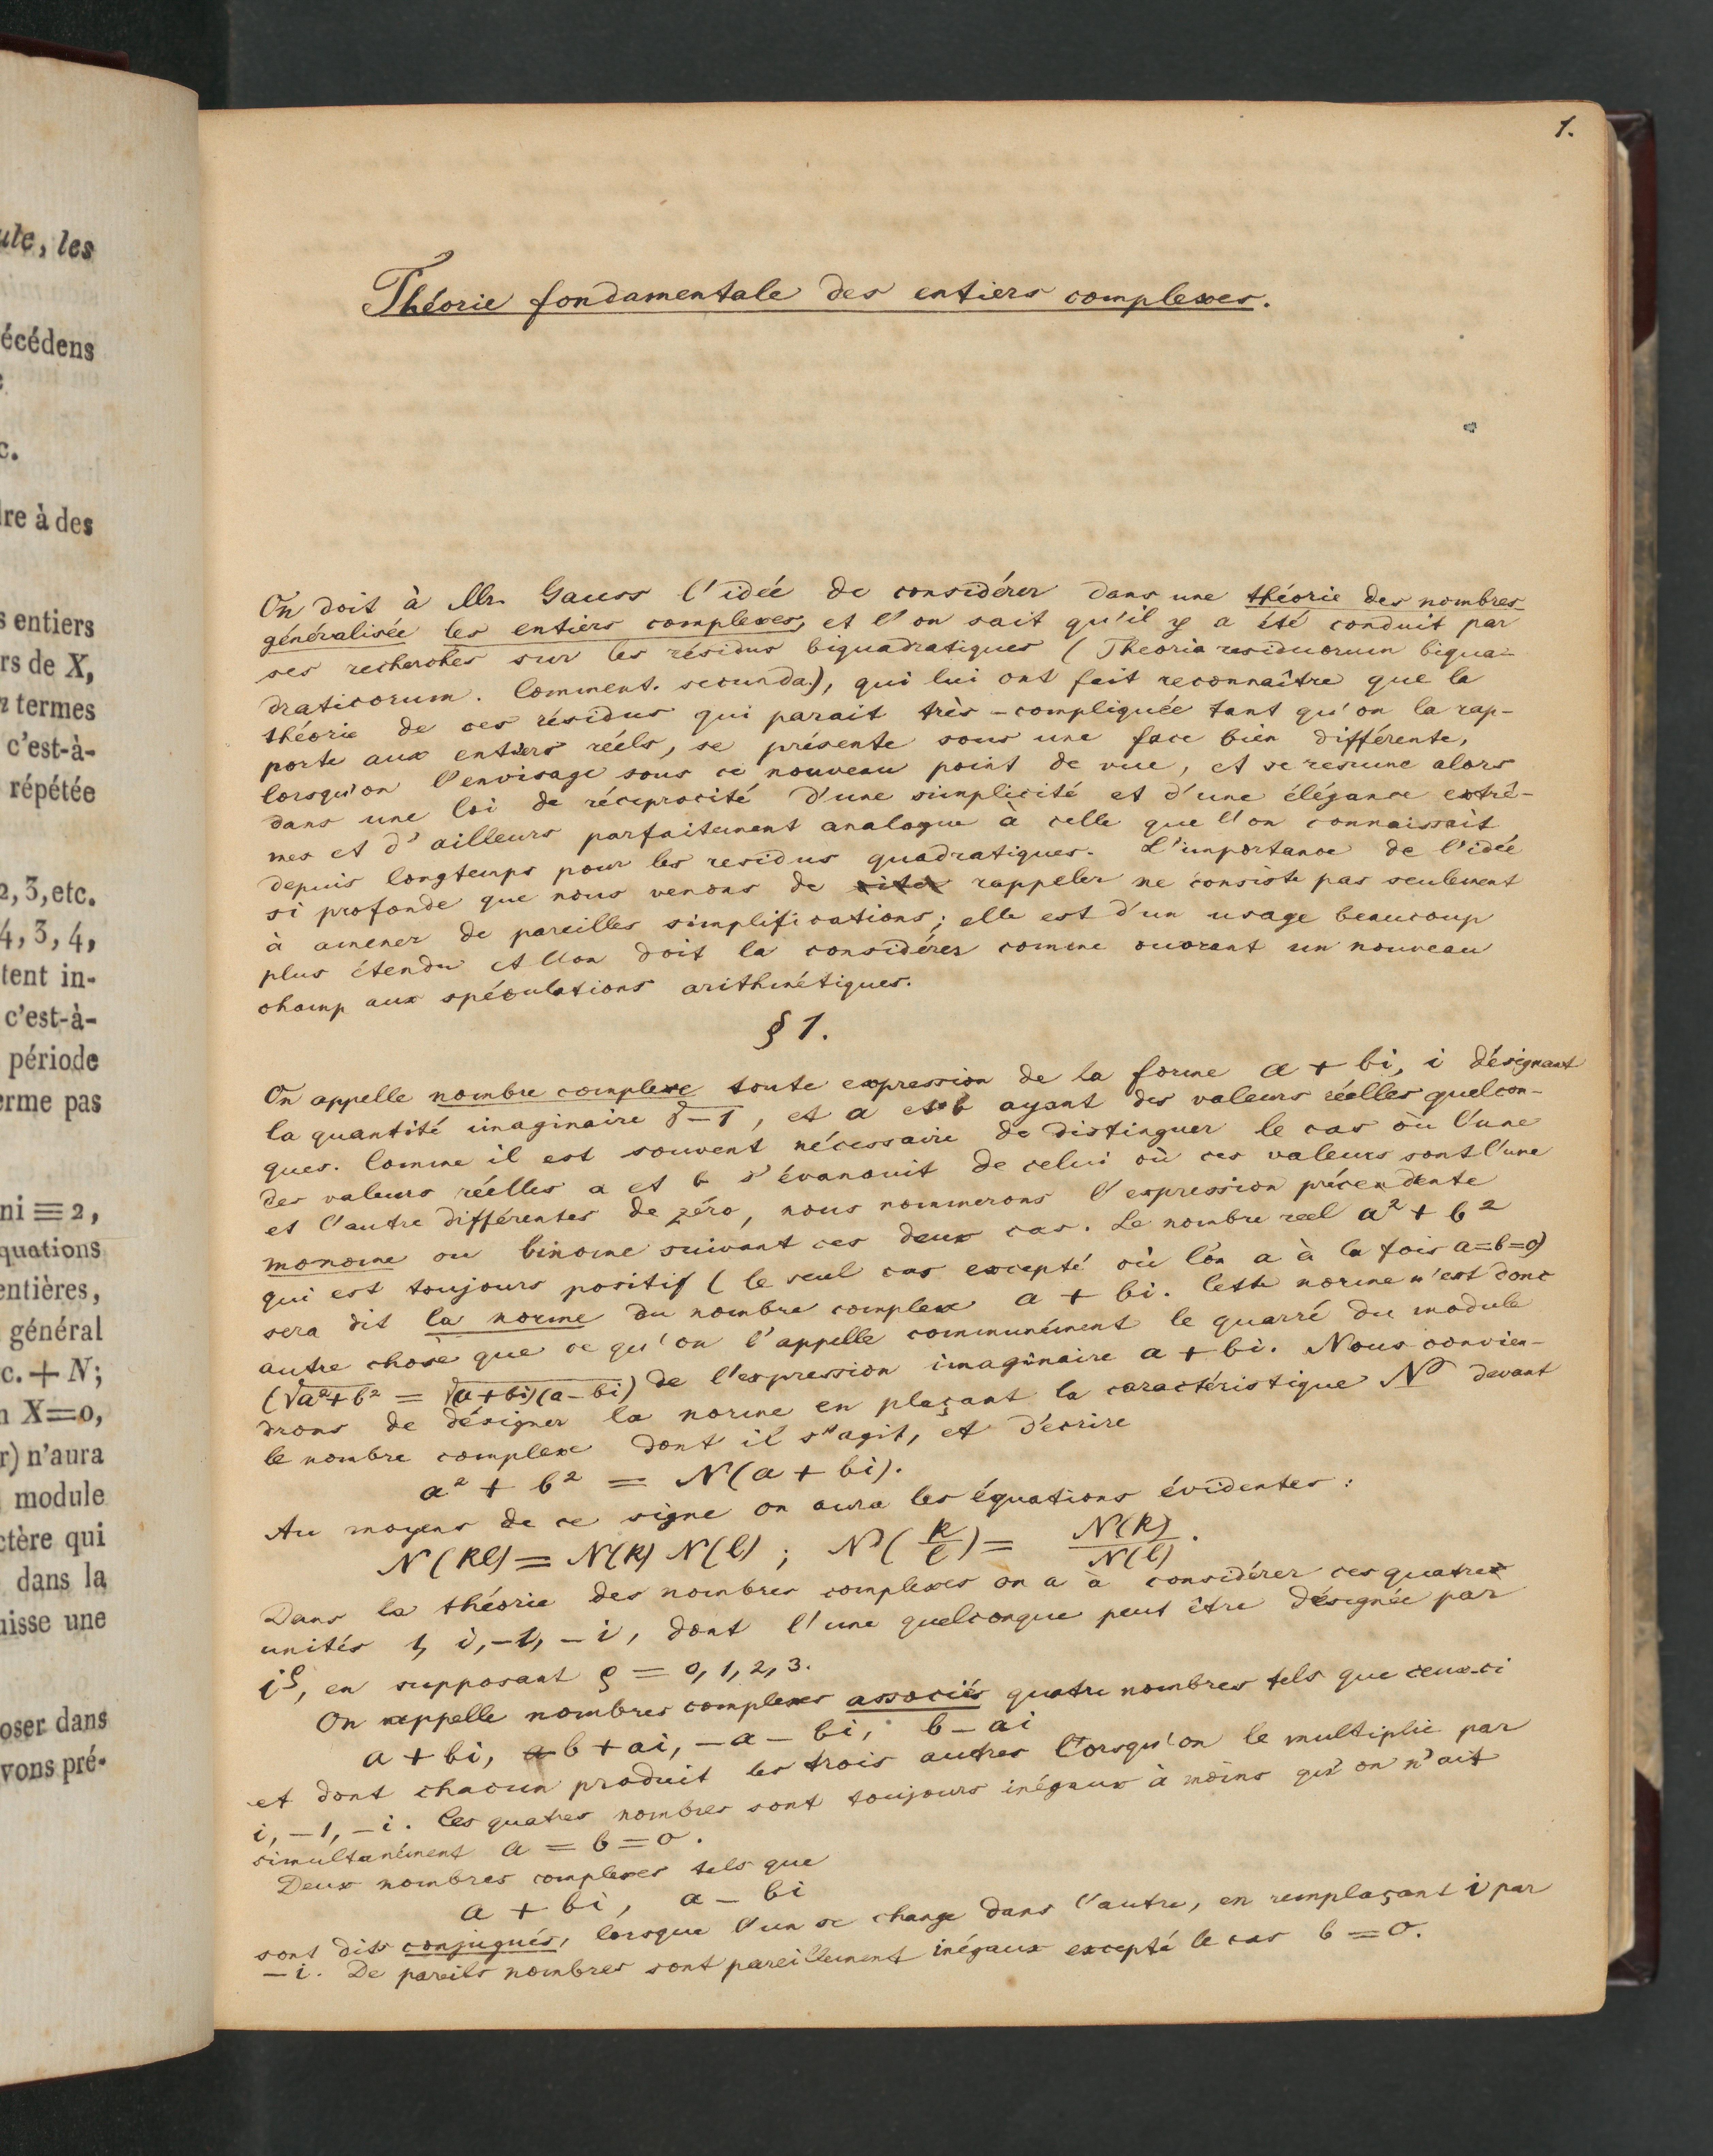 ule, les
écédens
c.
dre à des
s entiers
rs de X,
n termes
c'est-à-
répétée
2, 3, etc.
4, 3, 4,
tent in-
c'est-à-
période
erme pas
ni ≡ 2,
quations
entières,
général
c. + N;
n X=0,
r) n'aura
module
ctère qui
dans la
uisse une
oser dans
vons pré-
1.
Théorie fondamentale des entiers complexes.
On doit à Mr. Gauss l'idée de considérer dans une théorie des nombres
généralisée les entiers complexes, et l'on sait qu'il y a été conduit par
ses recherches sur les résidus biquadratiques (Theoria residuorum biqua-
draticorum. Comment. secunda.), qui lui ont fait reconnaître que la
théorie de ces résidus qui parait très-compliquée tant qu'on la rap-
porte aux entiers réels, se présente sous une face bien différente,
lorsqu'on l'envisage sous ce nouveau point de vue, et se resume alors
dans une loi de réciprocité d'une simplicité et d'une élégance extrê-
mes et d'ailleurs parfaitement analogue à celle que l'on connaissait
depuis longtemps pour les residus quadratiques. L'importance de l'idée
si profonde que nous venons de citer rappeler ne consiste pas seulement
à amener de pareilles simplifications; elle est d'un usage beaucoup
plus étendu et l'on doit la considérer comme ouvrant un nouveau
champ aux spéculations arithmétiques.
§ 1.
On appelle nombre complexe toute expression de la forme a + bi, i désignant
la quantité imaginaire √-1, et a et b ayant des valeurs réelles quelcon-
ques. Comme il est souvent nécessaire de distinguer le cas où l'une
des valeurs réelles a et b s'évanouit de celui où ces valeurs sont l'une
et l'autre différentes de zéro, nous nommerons l'expression précendente
monome ou binome suivant ces deux cas. Le nombre reel a² + b²
qui est toujours positif (le seul cas excepté où l'on a à la fois a=b=0)
sera dit la norme du nombre complexe a + bi. Cette norme n'est donc
autre chose que ce qu'on l'appelle communément le quarré du module
(√a²+b² = √(a+bi)(a-bi)) de l'expression imaginaire a + bi. Nous convien-
drons de désigner la norme en plaçant la caractéristique N devant
le nombre complexe dont il s'agit, et d'écrire
a² + b² = N(a + bi).
Au moyens de ce signe on aura les équations évidentes :
N(kl) = N(k) N(l) ; N(k/l) = N(k)/N(l).
Dans la théorie des nombres complexes on a à considérer ces quatres
unités 1, i, -1, -i, dont l'une quelconque peut être désignée par
i^ρ, en supposant ρ = 0, 1, 2, 3.
On appelle nombres complexes associés quatre nombres tels que ceux-ci
a + bi, a-b + ai, -a - bi, b - ai
et dont chacun produit les trois autres lorsqu'on le multiplie par
i, -1, -i. Ces quatres nombres sont toujours inégaux à moins qu'on n'ait
simultanément a = b = 0.
Deux nombres complexes tels que
a + bi, a - bi
sont dits conjugués, lorsque l'un se change dans l'autre, en remplaçant i par
-i. De pareils nombres sont pareillement inégaux excepté le cas b = 0.